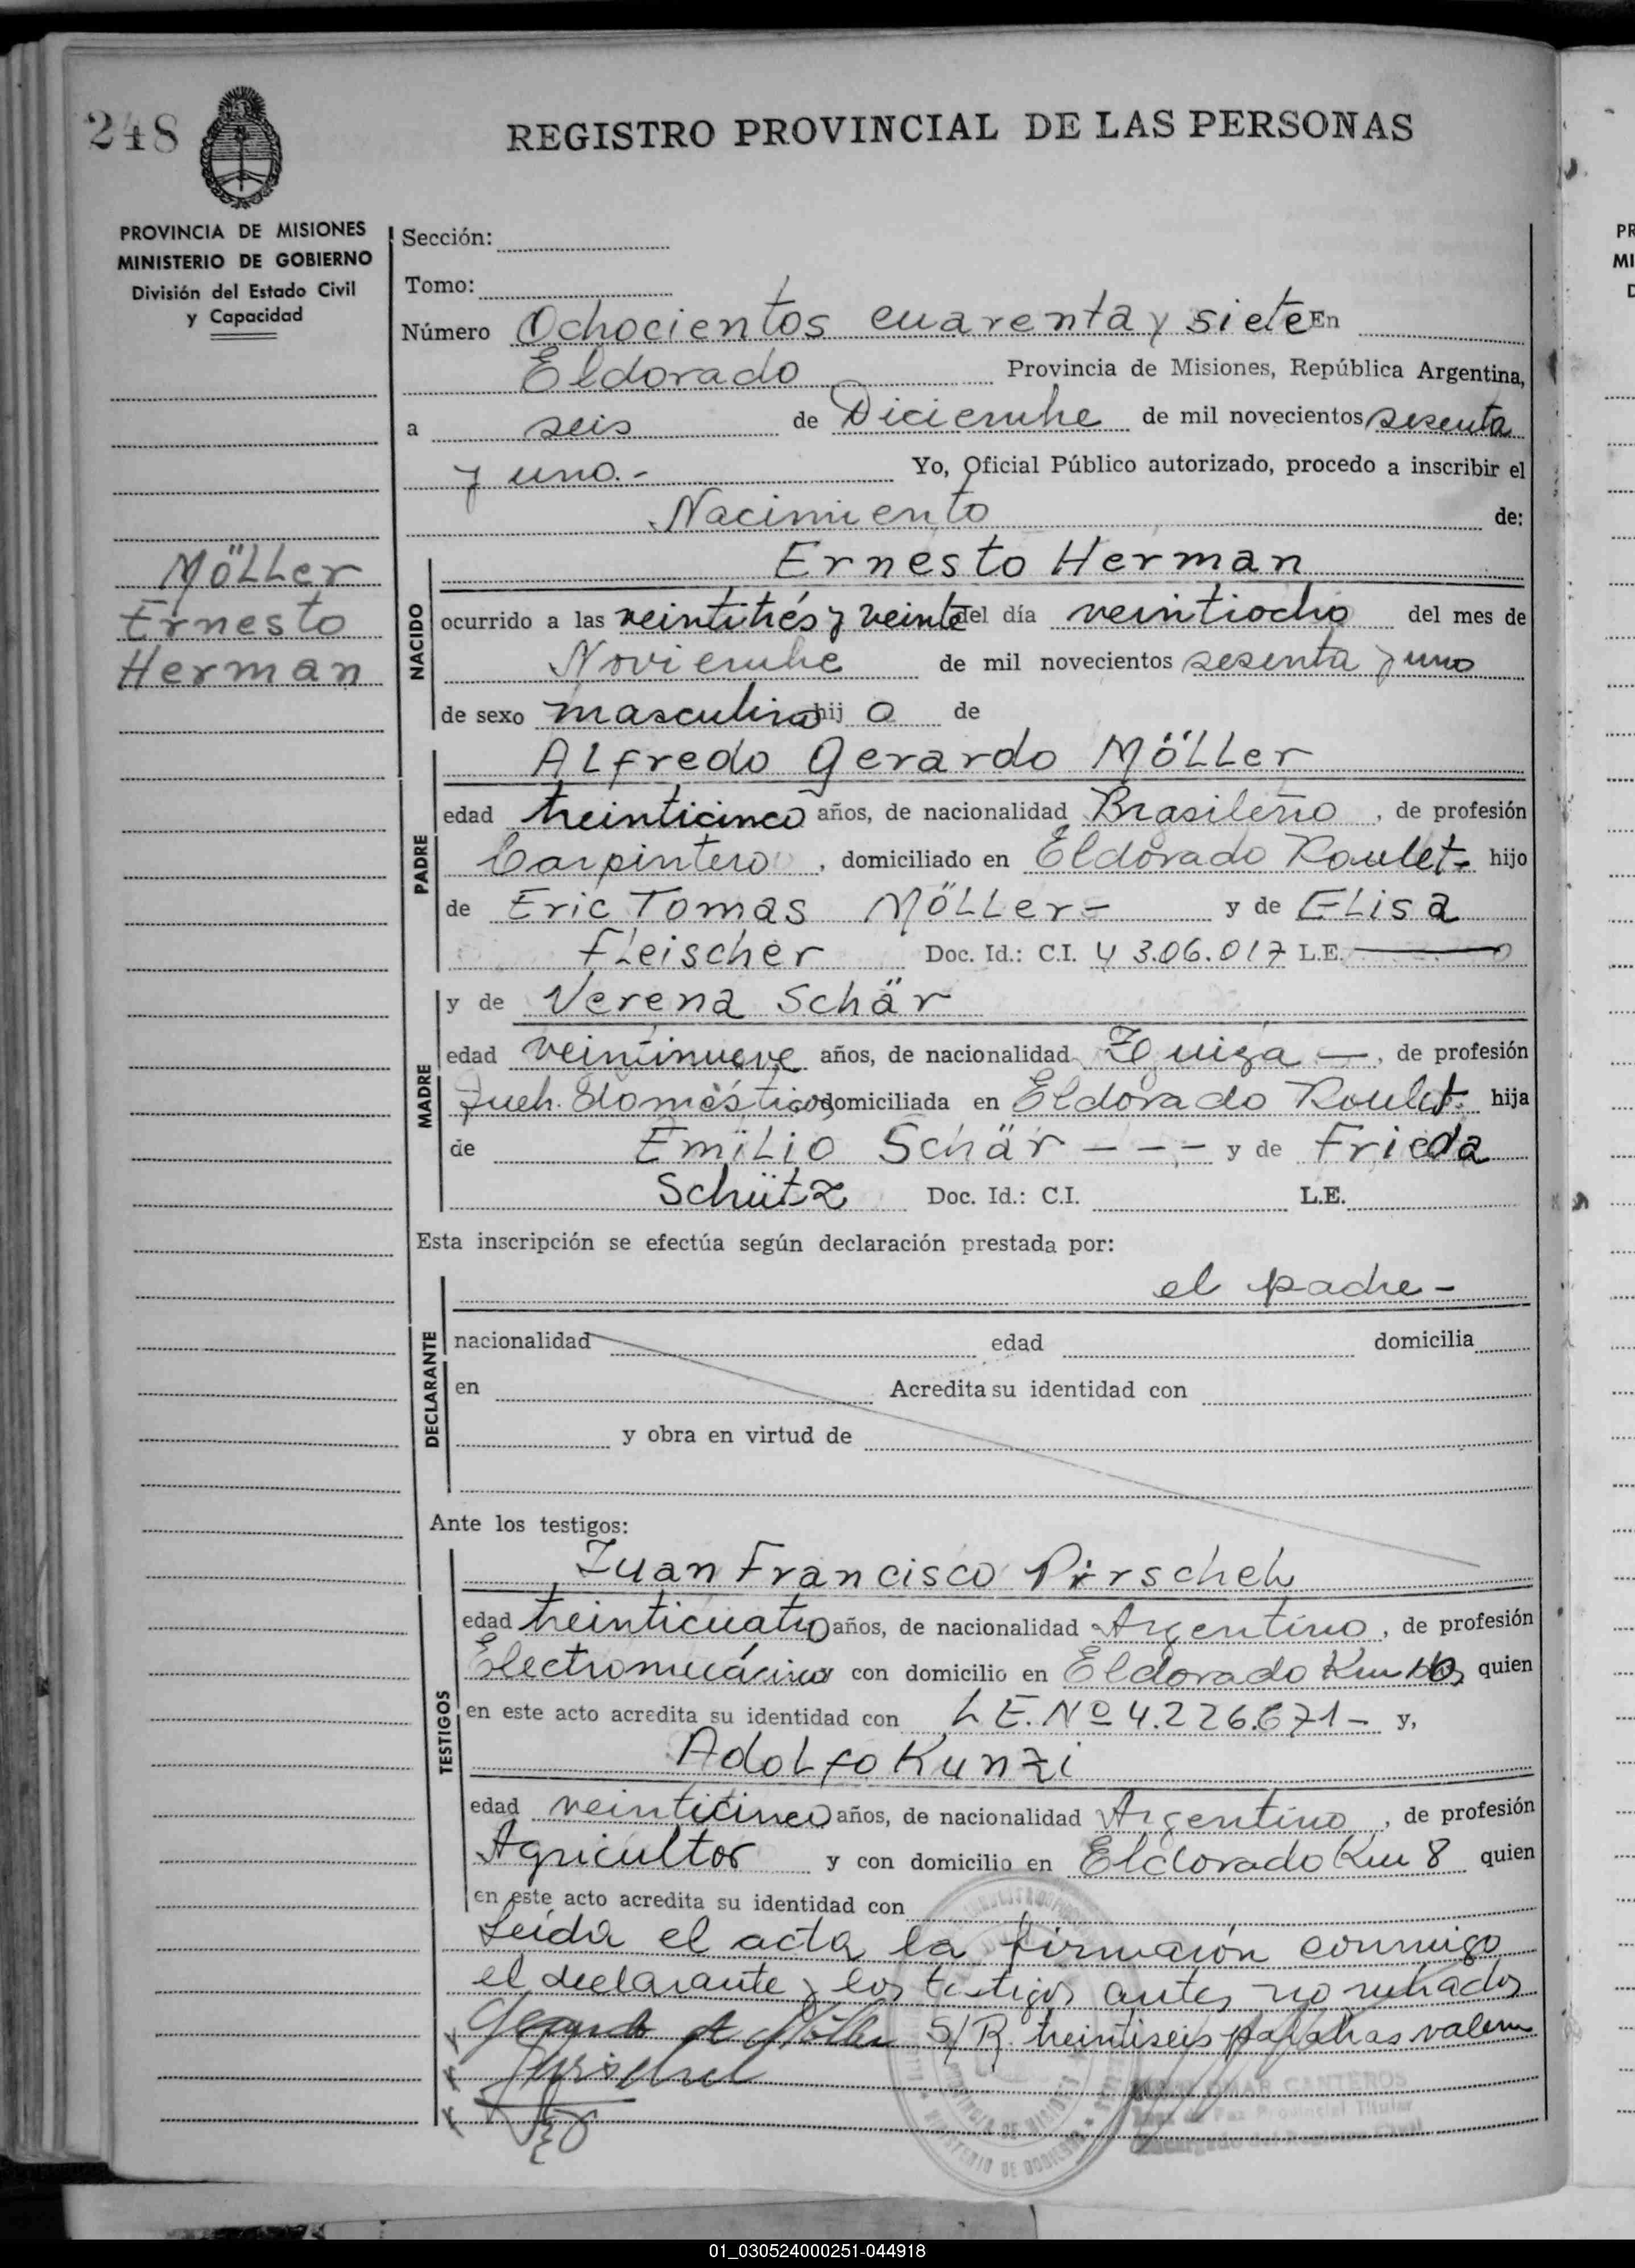 248
REGISTRO PROVINCIAL DE LAS PERSONAS
PROVINCIA DE MISIONES
MINISTERIO DE GOBIERNO
División del Estado Civil
y Capacidad
Möller
Ernesto
Herman
Sección:
Tomo:
Número Ochocientos cuarenta y siete En
Eldorado Provincia de Misiones, República Argentina,
a seis de Diciembre de mil novecientos sesenta
y uno.- Yo, Oficial Público autorizado, procedo a inscribir el
Nacimiento de:
NACIDO
Ernesto Herman
ocurrido a las veintitrés y veinte del día veintiocho del mes de
Noviembre de mil novecientos sesenta y uno
de sexo masculino hij o de
PADRE
Alfredo Gerardo Möller
edad treinticinco años, de nacionalidad Brasileño, de profesión
Carpintero, domiciliado en Eldorado Roulet- hijo
de Eric Tomas Möller- y de Elisa
Fleischer Doc. Id.: C.I. 4306.017 L.E.
MADRE
y de Verena Schär
edad veintinueve años, de nacionalidad Zuiza —, de profesión
Queh. domésticos domiciliada en Eldorado Roulet. hija
de Emilio Schär - - - y de Frieda
Schütz Doc. Id.: C.I. L.E.
Esta inscripción se efectúa según declaración prestada por:
DECLARANTE
el padre-
nacionalidad edad domicilia
en Acredita su identidad con
y obra en virtud de
Ante los testigos:
TESTIGOS
Juan Francisco Pirschel
edad treinticuatro años, de nacionalidad Argentino, de profesión
Electromecánico y con domicilio en Eldorado Km quien
en este acto acredita su identidad con L.E. Nº 4.226.671- y,
Adolfo Kunzi
edad veinticinco años, de nacionalidad Argentino, de profesión
Agricultor y con domicilio en Eldorado Km 8 quien
en este acto acredita su identidad con
Leída el acta la firmaron conmigo
el declarante y los testigos antes nombrados
Gerardo A Möller S/R. treintiseis palabras valen
Pirschel
OMAR CANTEROS
Juez de Paz Provincial Titular
Encargado del Registro Civil
PROVINCIA DE MISIONES
MINISTERIO DE GOBIERNO
01_030524000251-044918